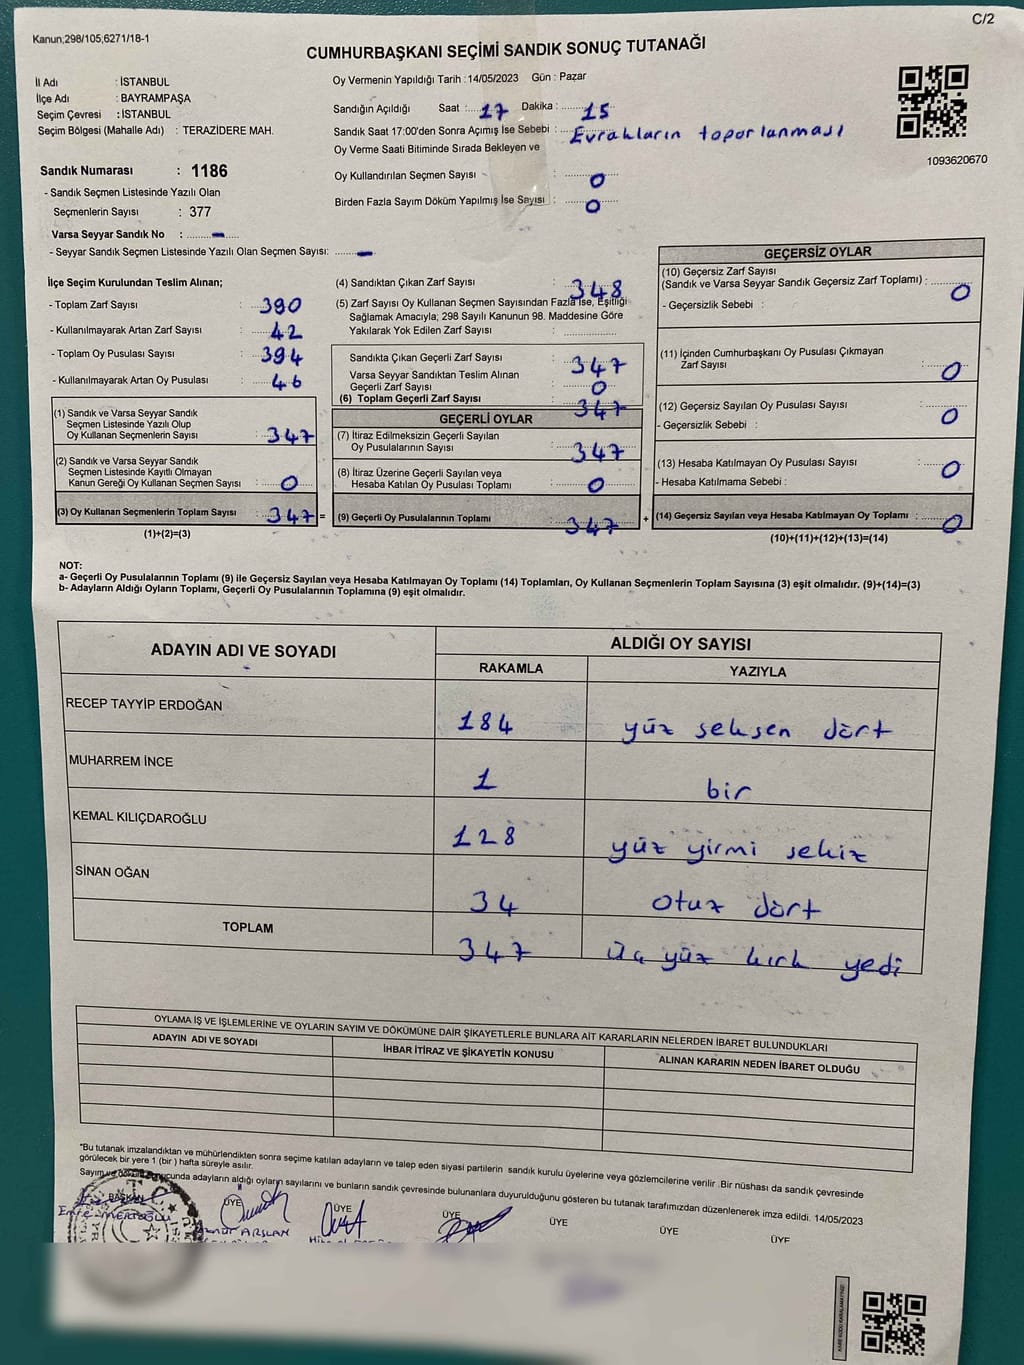 C/2
Kanun;298/105;6271/18-1
CUMHURBAŞKANI SEÇİMİ SANDIK SONUÇ TUTANAĞI
İl Adı : İSTANBUL
İlçe Adı : BAYRAMPAŞA
Seçim Çevresi : İSTANBUL
Seçim Bölgesi (Mahalle Adı) : TERAZİDERE MAH.
Oy Vermenin Yapıldığı Tarih : 14/05/2023 Gün : Pazar
Sandığın Açıldığı Saat : 17 Dakika : 15
Sandık Saat 17:00'den Sonra Açımış İse Sebebi : Evrakların toparlanması
Oy Verme Saati Bitiminde Sırada Bekleyen ve
Oy Kullandırılan Seçmen Sayısı : 0
Birden Fazla Sayım Döküm Yapılmış İse Sayısı : 0
1093620670
Sandık Numarası : 1186
- Sandık Seçmen Listesinde Yazılı Olan
Seçmenlerin Sayısı : 377
Varsa Seyyar Sandık No : -
- Seyyar Sandık Seçmen Listesinde Yazılı Olan Seçmen Sayısı: -
İlçe Seçim Kurulundan Teslim Alınan;
- Toplam Zarf Sayısı : 390
- Kullanılmayarak Artan Zarf Sayısı : 42
- Toplam Oy Pusulası Sayısı : 394
- Kullanılmayarak Artan Oy Pusulası : 46
(1) Sandık ve Varsa Seyyar Sandık
Seçmen Listesinde Yazılı Olup
Oy Kullanan Seçmenlerin Sayısı : 347
(2) Sandık ve Varsa Seyyar Sandık
Seçmen Listesinde Kayıtlı Olmayan
Kanun Gereği Oy Kullanan Seçmen Sayısı : 0
(3) Oy Kullanan Seçmenlerin Toplam Sayısı : 347 =
(1)+(2)=(3)
(4) Sandıktan Çıkan Zarf Sayısı : 348
(5) Zarf Sayısı Oy Kullanan Seçmen Sayısından Fazla İse, Eşitliği
Sağlamak Amacıyla; 298 Sayılı Kanunun 98. Maddesine Göre
Yakılarak Yok Edilen Zarf Sayısı :
Sandıkta Çıkan Geçerli Zarf Sayısı : 347
Varsa Seyyar Sandıktan Teslim Alınan
Geçerli Zarf Sayısı : 0
(6) Toplam Geçerli Zarf Sayısı : 347
GEÇERLİ OYLAR
(7) İtiraz Edilmeksizin Geçerli Sayılan
Oy Pusulalarının Sayısı : 347
(8) İtiraz Üzerine Geçerli Sayılan veya
Hesaba Katılan Oy Pusulası Toplamı : 0
(9) Geçerli Oy Pusulalarının Toplamı : 347 +
GEÇERSİZ OYLAR
(10) Geçersiz Zarf Sayısı
(Sandık ve Varsa Seyyar Sandık Geçersiz Zarf Toplamı) : 0
- Geçersizlik Sebebi :
(11) İçinden Cumhurbaşkanı Oy Pusulası Çıkmayan
Zarf Sayısı : 0
(12) Geçersiz Sayılan Oy Pusulası Sayısı : 0
- Geçersizlik Sebebi :
(13) Hesaba Katılmayan Oy Pusulası Sayısı : 0
- Hesaba Katılmama Sebebi :
(14) Geçersiz Sayılan veya Hesaba Katılmayan Oy Toplamı : 0
(10)+(11)+(12)+(13)=(14)
NOT:
a- Geçerli Oy Pusulalarının Toplamı (9) ile Geçersiz Sayılan veya Hesaba Katılmayan Oy Toplamı (14) Toplamları, Oy Kullanan Seçmenlerin Toplam Sayısına (3) eşit olmalıdır. (9)+(14)=(3)
b- Adayların Aldığı Oyların Toplamı, Geçerli Oy Pusulalarının Toplamına (9) eşit olmalıdır.
ADAYIN ADI VE SOYADI ALDIĞI OY SAYISI
RAKAMLA YAZIYLA
RECEP TAYYİP ERDOĞAN 184 yüz seksen dört
MUHARREM İNCE 1 bir
KEMAL KILIÇDAROĞLU 128 yüz yirmi sekiz
SİNAN OĞAN 34 otuz dört
TOPLAM 347 üç yüz kırk yedi
OYLAMA İŞ VE İŞLEMLERİNE VE OYLARIN SAYIM VE DÖKÜMÜNE DAİR ŞİKAYETLERLE BUNLARA AİT KARARLARIN NELERDEN İBARET BULUNDUKLARI
ADAYIN ADI VE SOYADI İHBAR İTİRAZ VE ŞİKAYETİN KONUSU ALINAN KARARIN NEDEN İBARET OLDUĞU
*Bu tutanak imzalandıktan ve mühürlendikten sonra seçime katılan adayların ve talep eden siyasi partilerin sandık kurulu üyelerine veya gözlemcilerine verilir .Bir nüshası da sandık çevresinde
görülecek bir yere 1 (bir ) hafta süreyle asılır.
Sayım ve döküm sonucunda adayların aldığı oyların sayılarını ve bunların sandık çevresinde bulunanlara duyurulduğunu gösteren bu tutanak tarafımızdan düzenlenerek imza edildi. 14/05/2023
BAŞKAN ÜYE ÜYE ÜYE ÜYE ÜYE ÜYE
ARSLAN